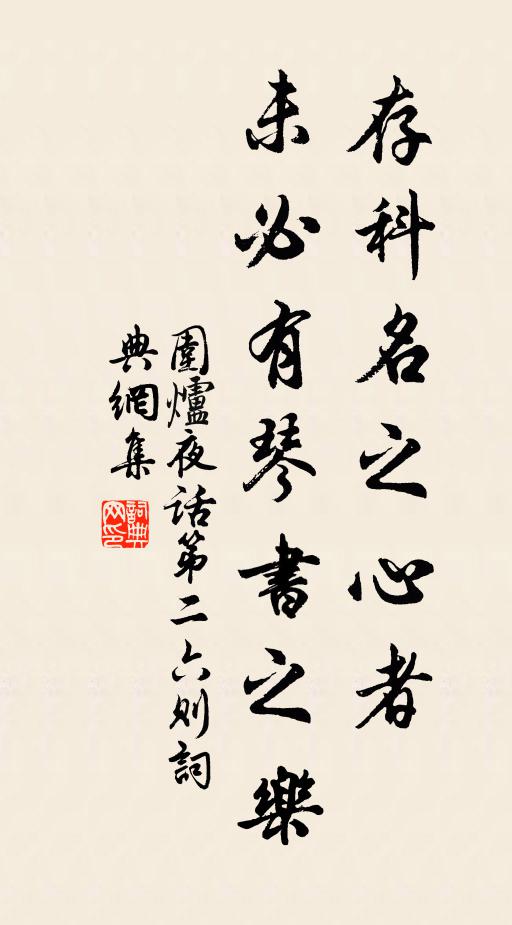 存科名之心者
未必有琴書之樂
圍爐夜话第二六则詞
典網集
詞典
网印